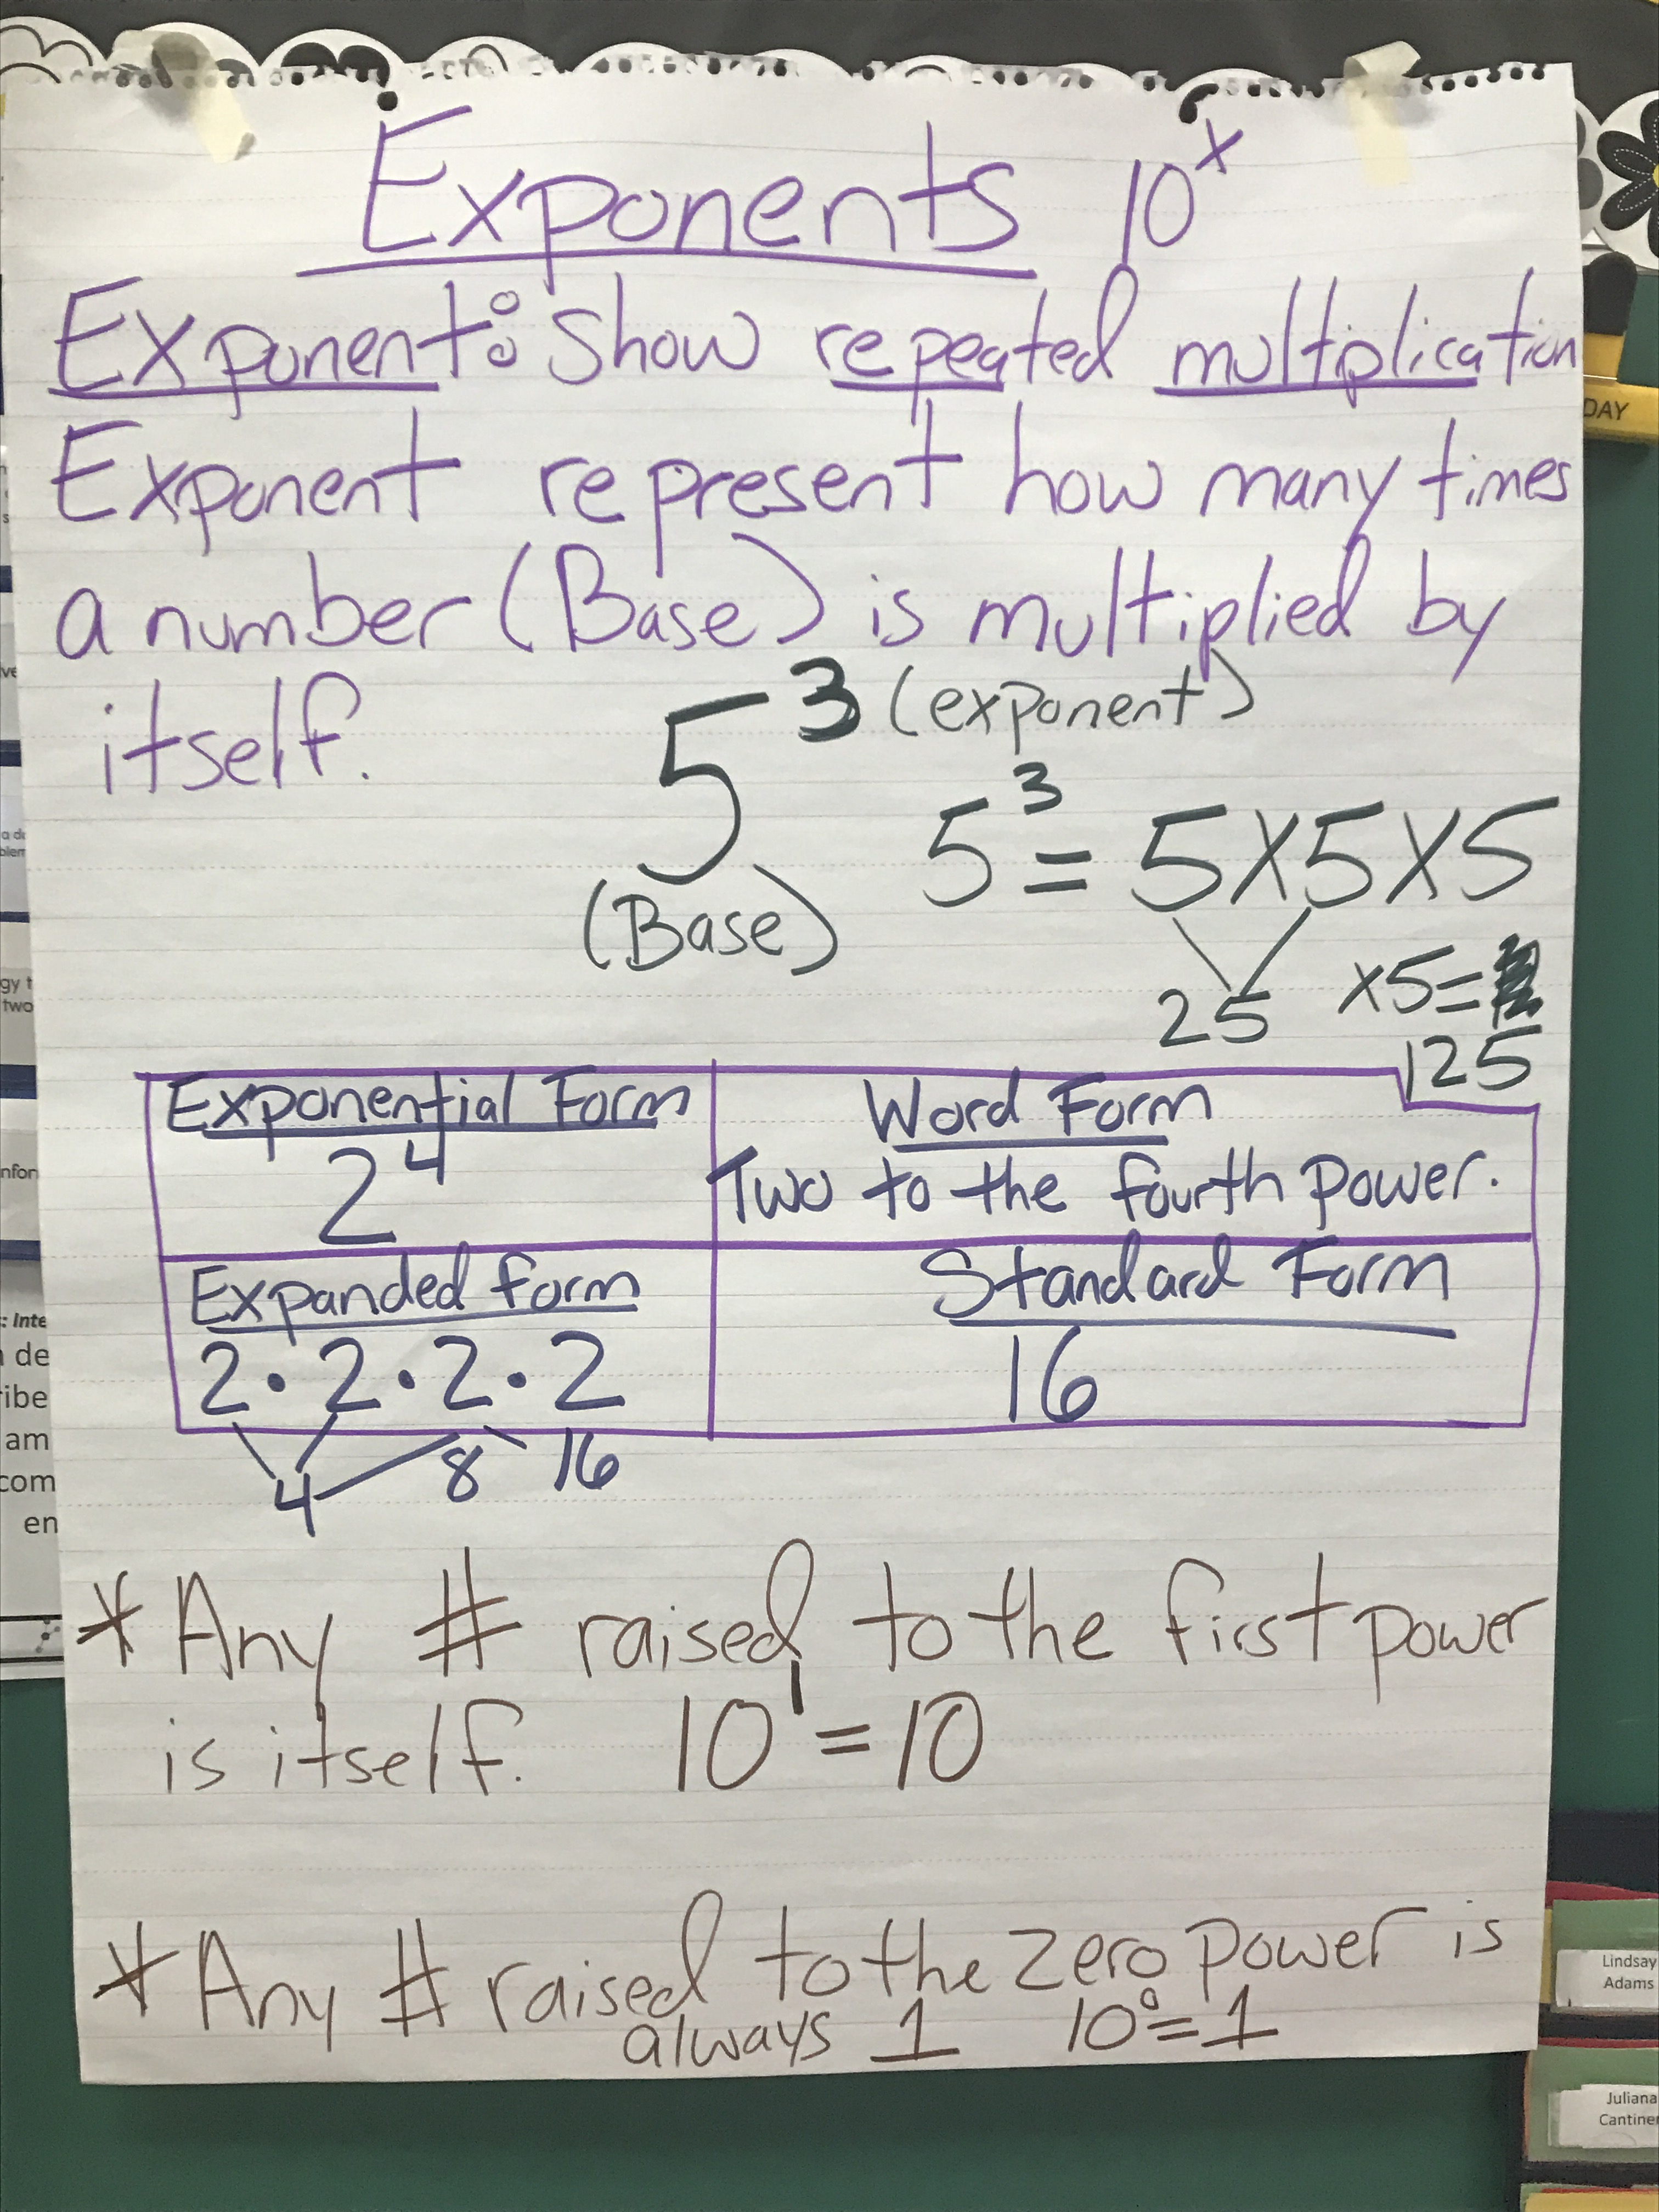 Exponents 10ˣ
Exponent: Show repeated multiplication
Exponent represent how many times
a number (Base) is multiplied by
itself.
5³ (exponent)
(Base)
5³ = 5x5x5
25 x5=
125
Exponential Form
2⁴
Word Form
Two to the fourth power.
Expanded form
2·2·2·2
4 8 16
Standard Form
16
* Any # raised to the first power
is itself. 10¹ = 10
* Any # raised to the zero power is
always 1 10⁰ = 1
DAY
two
: Inte
de
am
com
en
Lindsay
Adams
Juliana